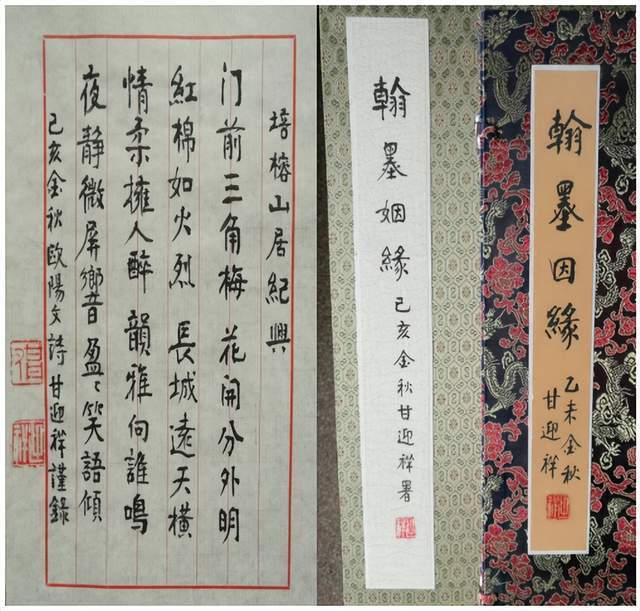 培榕山居紀興
门前三角梅 花開分外明
紅棉如火烈 長城遠天橫
情柔擁人醉 韻雅向誰鳴
夜静微屏響音 盈〻笑語傾
己亥金秋欧陽文詩 甘迎祥謹錄
翰墨姻緣
己亥金秋甘迎祥署
翰墨因緣
乙未金秋
甘迎祥